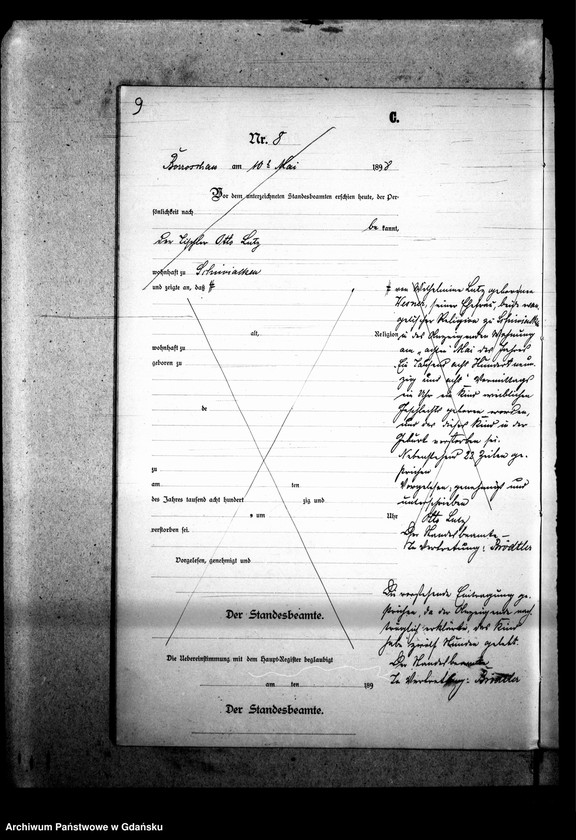 9
C.
Nr. 8
Borroschau am 10t Mai 1898
Vor dem unterzeichneten Standesbeamten erschien heute, der Per-
sönlichkeit nach
be kannt,
der Tischler Otto Lutz
wohnhaft zu Schiwialken
und zeigte an, daß
von Wilhelmine Lutz geborenen
seiner Ehefrau, beide evan-
alt, Religion
gelischer Religion zu Schiwialken
in des Anzeigenden Wohnung
wohnhaft zu
am achten Mai des Jahres
geboren zu
Ein Tausend acht Hundert neun-
zig und acht Vormittags
ein Uhr ein Kind weiblichen
Geschlechts geboren worden,
de
und daß dieses Kind in der
Geburt verstorben sei.
Nebenstehend 23 Zeilen ge-
zu
strichen
am ten
Vorgelesen, genehmigt und
des Jahres tausend acht hundert zig und
unterschrieben
um Uhr
Otto Lutz
verstorben sei.
Der Standesbeamte
In Vertretung:
Vorgelesen, genehmigt und
Die vorstehende Eintragung ge-
strichen, da der Anzeigende nach-
Der Standesbeamte.
träglich erklärte, das Kind
habe zwölf Stunden gelebt.
Die Uebereinstimmung mit dem Haupt-Register beglaubigt
Der Standesbeamte
In Vertretung:
am ten 189
Der Standesbeamte.
Archiwum Państwowe w Gdańsku